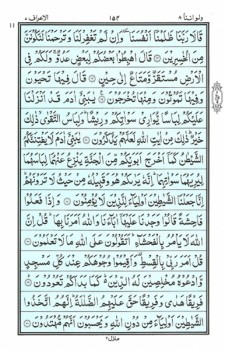 ولو اننا ٨ ١٥٤ الاعراف ٧
قَالَا رَبَّنَا ظَلَمْنَا أَنْفُسَنَا وَإِنْ لَمْ تَغْفِرْ لَنَا وَتَرْحَمْنَا لَنَكُونَنَّ
مِنَ الْخٰسِرِينَ قَالَ اهْبِطُوا بَعْضُكُمْ لِبَعْضٍ عَدُوٌّ وَلَكُمْ فِي
الْأَرْضِ مُسْتَقَرٌّ وَمَتَاعٌ إِلٰى حِينٍ قَالَ فِيهَا تَحْيَوْنَ
وَفِيهَا تَمُوتُونَ وَمِنْهَا تُخْرَجُونَ يٰبَنِي آدَمَ قَدْ أَنْزَلْنَا
عَلَيْكُمْ لِبَاسًا يُوَارِي سَوْاٰتِكُمْ وَرِيشًا وَلِبَاسُ التَّقْوٰى ذٰلِكَ
خَيْرٌ ذٰلِكَ مِنْ اٰيٰتِ اللهِ لَعَلَّهُمْ يَذَّكَّرُونَ يٰبَنِي آدَمَ لَا يَفْتِنَنَّكُمُ
الشَّيْطٰنُ كَمَا أَخْرَجَ أَبَوَيْكُمْ مِنَ الْجَنَّةِ يَنْزِعُ عَنْهُمَا لِبَاسَهُمَا
لِيُرِيَهُمَا سَوْاٰتِهِمَا إِنَّهُ يَرٰىكُمْ هُوَ وَقَبِيلُهُ مِنْ حَيْثُ لَا تَرَوْنَهُمْ
إِنَّا جَعَلْنَا الشَّيٰطِينَ أَوْلِيَاءَ لِلَّذِينَ لَا يُؤْمِنُونَ وَإِذَا فَعَلُوا
فَاحِشَةً قَالُوا وَجَدْنَا عَلَيْهَا اٰبَاءَنَا وَاللهُ أَمَرَنَا بِهَا قُلْ إِنَّ
اللهَ لَا يَأْمُرُ بِالْفَحْشَاءِ أَتَقُولُونَ عَلَى اللهِ مَا لَا تَعْلَمُونَ
قُلْ أَمَرَ رَبِّي بِالْقِسْطِ وَأَقِيمُوا وُجُوهَكُمْ عِنْدَ كُلِّ مَسْجِدٍ
وَادْعُوهُ مُخْلِصِينَ لَهُ الدِّينَ كَمَا بَدَأَكُمْ تَعُودُونَ
فَرِيقًا هَدٰى وَفَرِيقًا حَقَّ عَلَيْهِمُ الضَّلٰلَةُ إِنَّهُمُ اتَّخَذُوا
الشَّيٰطِينَ أَوْلِيَاءَ مِنْ دُونِ اللهِ وَيَحْسَبُونَ أَنَّهُمْ مُهْتَدُونَ